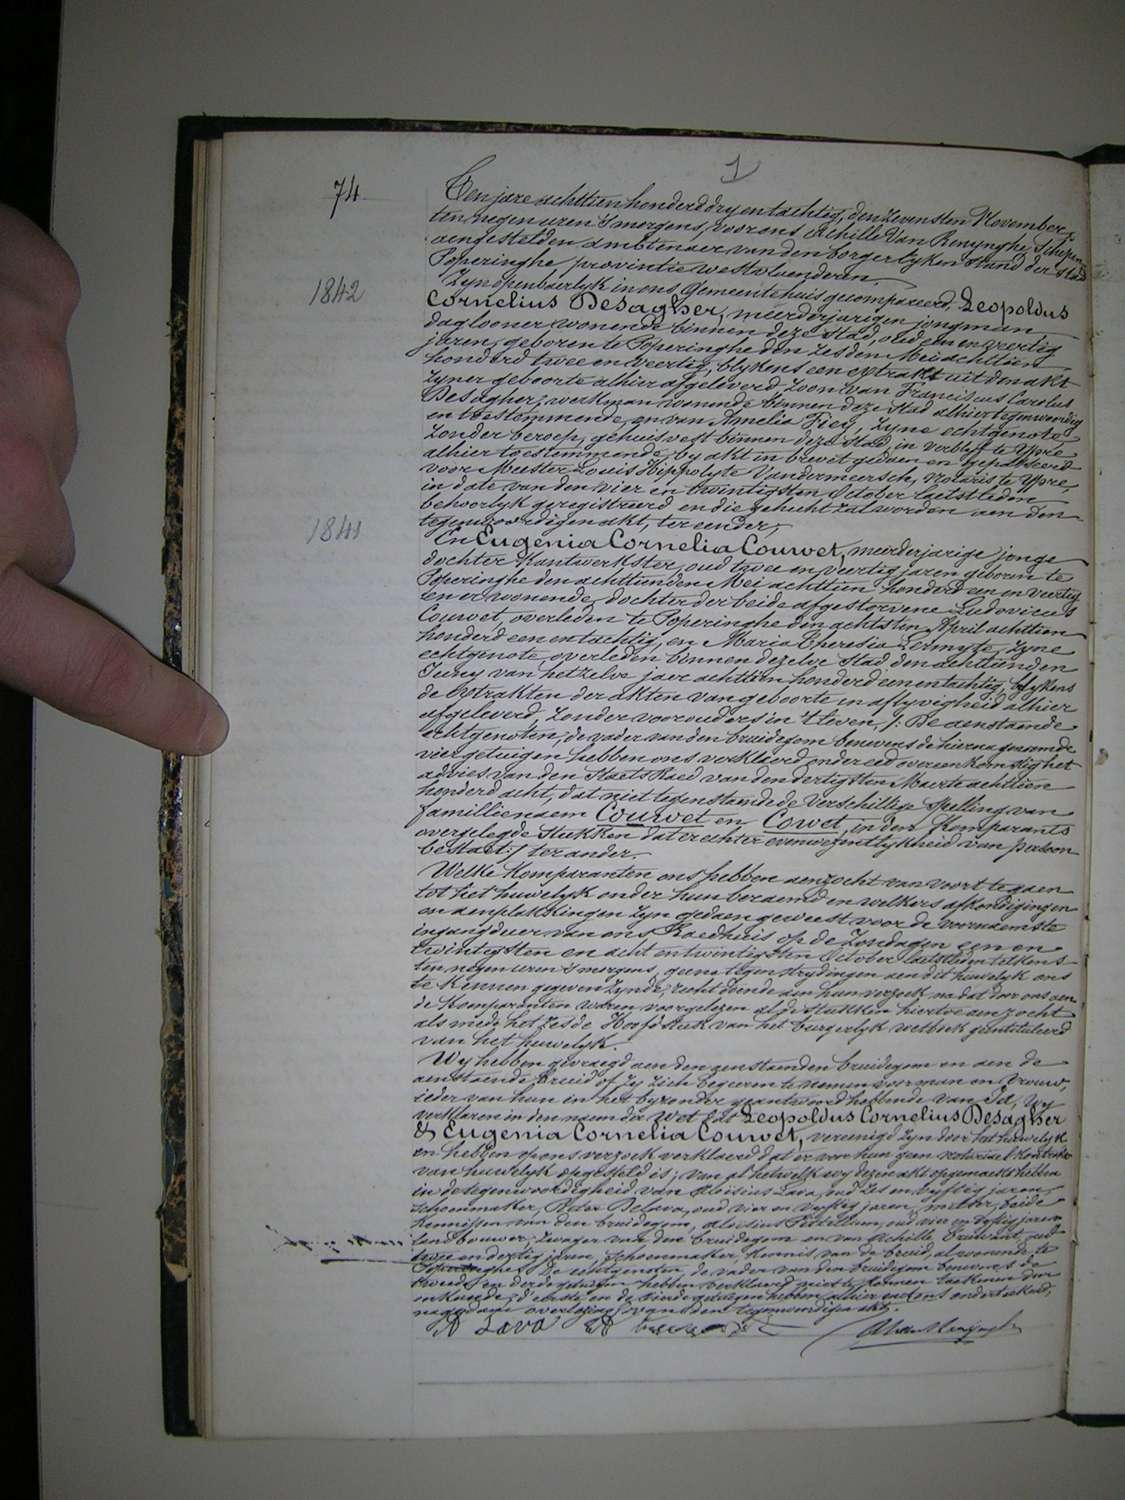 1
74
Ten jare achttien honderd dry en tachtig, den zevensten November,
ten negen uren 's morgens, voor ons Achille Van Renynghe, Schepen
aengestelden ambtenaer van den borgerlyken stand der stad
Poperinghe provintie westvlaenderen.
Zyn openbaerlyk in ons Gemeentehuis gecompareerd, Leopoldus
1842
Cornelius Desagher, meerderjarigen jongman
daglooner wonende binnen deze stad, oud een en veertig
jaren, geboren te Poperinghe den zesden Mei achttien
honderd twee en veertig, blykens een extrakt uit den akt
zyner geboorte alhier afgeleverd, zoon van Franciscus Carolus
Desagher, werkman wonende binnen deze stad alhier tegenwoordig
en toestemmende, en van Amelia Fiey, zyne echtgenote
zonder beroep, gehuisvest binnen deze stad, in verblyf te Ypre
alhier toestemmende, by akt in brevet gedaen en gepasseerd
voor Meester Louis Hippolyte Vandermeersch, Notaris te Ypre,
in date van den vier en twintigsten October laetstleden
behoorlyk geregistreerd en die gehecht zal worden aen den
tegenwoordigen akt, ter eender;
1841
En Eugenia Cornelia Couwet, meerderjarige jonge
dochter Kantwerkster, oud twee en veertig jaren geboren te
Poperinghe den achttienden Mei achttien honderd een en veertig
en er wonende, dochter der beide afgestorvene Ludovicus
Couwet, overleden te Poperinghe den achtsten April achttien
honderd een en tachtig, en Maria Theresia Lermyte, zyne
echtgenote overleden binnen dezelve stad den achttienden
Juny van hetzelve jaer achttien honderd een en tachtig, blykens
de extrakten der akten van geboorte en aflyvigheid alhier
afgeleverd, zonder voorouders in 't leven, /: De aenstaende
echtgenoten, de vader van den bruidegom benevens de hierna genoemde
vier getuigen hebben ons verklaerd onder eed overeenkomstig het
advies van den Staets Raed van den dertigsten Maerte achttien
honderd acht, dat niet tegenstaende de verschillige spelling van
familienaem Couwet en Cowet, in den Komparants
overgelegde stukken dat er echter eenwezentlykheid van persoon
bestaet :/ ter ander.
Welke Komparanten ons hebben aenzocht van voort te gaen
tot het huwelyk onder hun beraemd en welkers afkondigingen
en aenplakkingen zyn gedaen geweest voor de voornaemste
ingangdeur van ons Raedhuis op de Zondagen een en
twintigsten en acht en twintigsten October laetstleden telkens
ten negen uren 's morgens, geene tegenstrydingen aen dit huwelyk ons
te kennen gegeven zynde, recht doende aen hun verzoek na dat door ons aen
de Komparanten waren voorgelezen al de stukken hiertoe aenzocht
als mede het zesde Hoofdstuk van het burgerlyk wetboek geintituleerd
van het huwelyk.
Wy hebben gevraegd aen den aenstaenden bruidegom en aen de
aenstaende bruid of zy zich begeeren te nemen voor man en vrouw,
ieder van hun in het byzonder geantwoord hebbende van Ja, wy
verklaren in den naem der wet dat Leopoldus Cornelius Desagher
& Eugenia Cornelia Couwet, vereenigd zyn door het huwelyk
en hebben op ons verzoek verklaerd dat er voor hun geen notarieel kontrakt
van huwelyk opgesteld is; van al hetwelk wy dezen akt opgemaekt hebben
in de tegenwoordigheid van Aloisius Lava, oud zes en vyftig jaren,
schoenmaker, Pieter Delava, oud vier en vyftig jaren, beide
kennissen van den bruidegom, Aloisius oud vier en vyftig jaren
landbouwer, zwager van den bruidegom en van Achille Truwant, oud
twee en dertig jaren, schoenmaker, kennis van de bruid, al wonende te
Poperinghe. De echtgenoten, de vader van den bruidegom benevens de
tweede en derde getuigen hebben verklaerd niet te kunnen teekenen door
onkunde, d'eerste en de vierde getuigen hebben alhier met ons onderteekend,
nagedaen overlezing van den tegenwoordigen akt.
A Lava